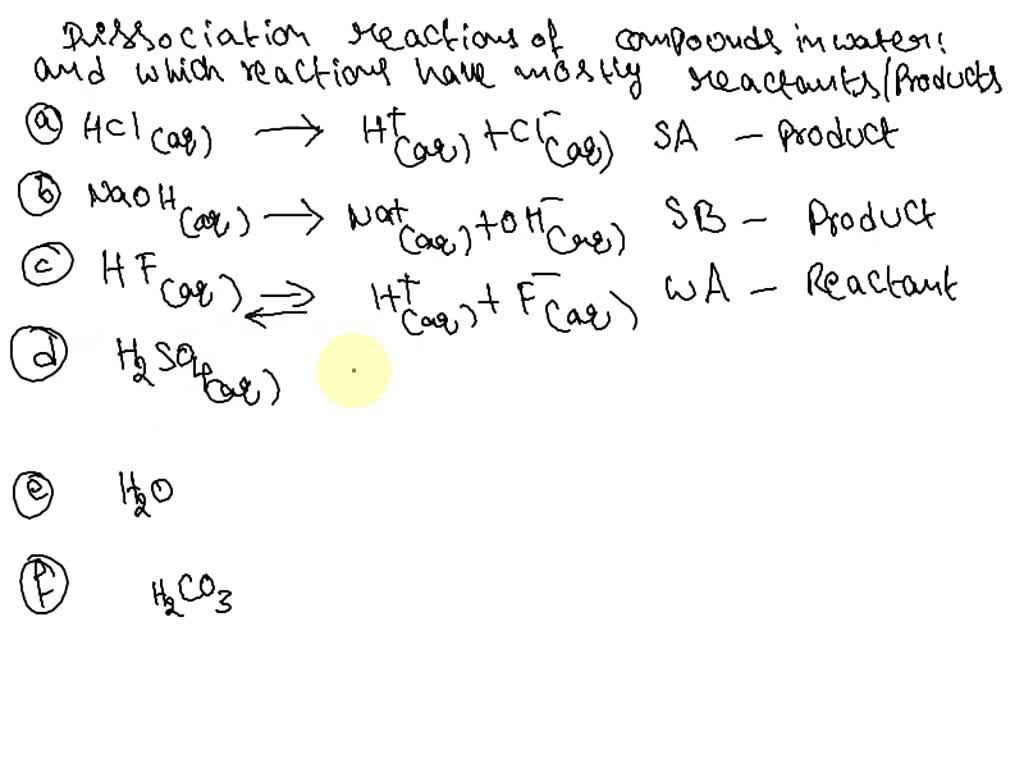 Dissociation reactions of compounds in water:
and which reactions have mostly reactants/Products
(a) HCl(aq) → H⁺(aq) + Cl⁻(aq) SA – Product
(b) NaOH(aq) → Na⁺(aq) + OH⁻(aq) SB – Product
(c) HF(aq) ⇌ H⁺(aq) + F⁻(aq) WA – Reactant
(d) H₂SO₄(aq)
(e) H₂O
(f) H₂CO₃